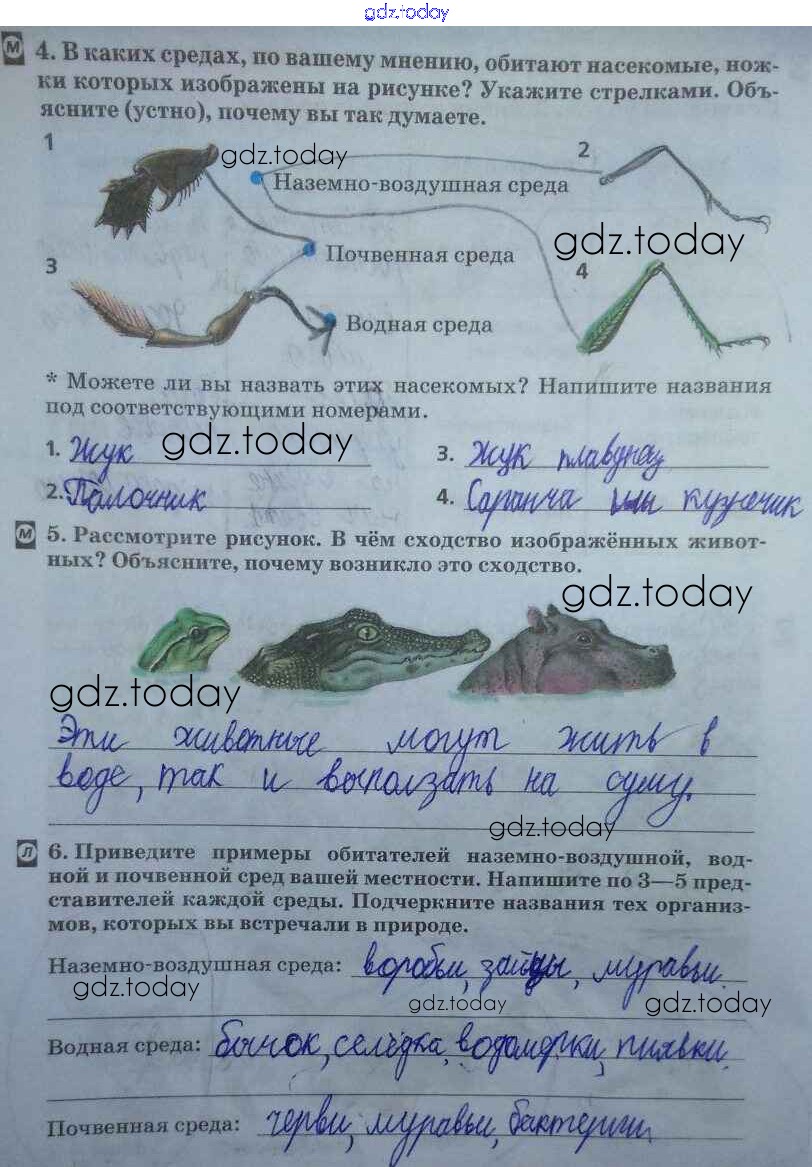 gdz.today
М 4. В каких средах, по вашему мнению, обитают насекомые, нож-
ки которых изображены на рисунке? Укажите стрелками. Объ-
ясните (устно), почему вы так думаете.
1 gdz.today 2
Наземно-воздушная среда
gdz.today
Почвенная среда
3 4
Водная среда
* Можете ли вы назвать этих насекомых? Напишите названия
под соответствующими номерами.
1. Жук gdz.today 3. Жук плавунец
2. Палочник 4. Саранча или кузнечик
М 5. Рассмотрите рисунок. В чём сходство изображённых живот-
ных? Объясните, почему возникло это сходство.
gdz.today
gdz.today
Эти животные могут жить в
воде, так и выползать на сушу.
gdz.today
Л 6. Приведите примеры обитателей наземно-воздушной, вод-
ной и почвенной сред вашей местности. Напишите по 3—5 пред-
ставителей каждой среды. Подчеркните названия тех организ-
мов, которых вы встречали в природе.
Наземно-воздушная среда: воробьи, зайцы, муравьи.
gdz.today gdz.today gdz.today
Водная среда: бычок, селёдка, водомерки, пиявки.
Почвенная среда: черви, муравьи, бактерии.